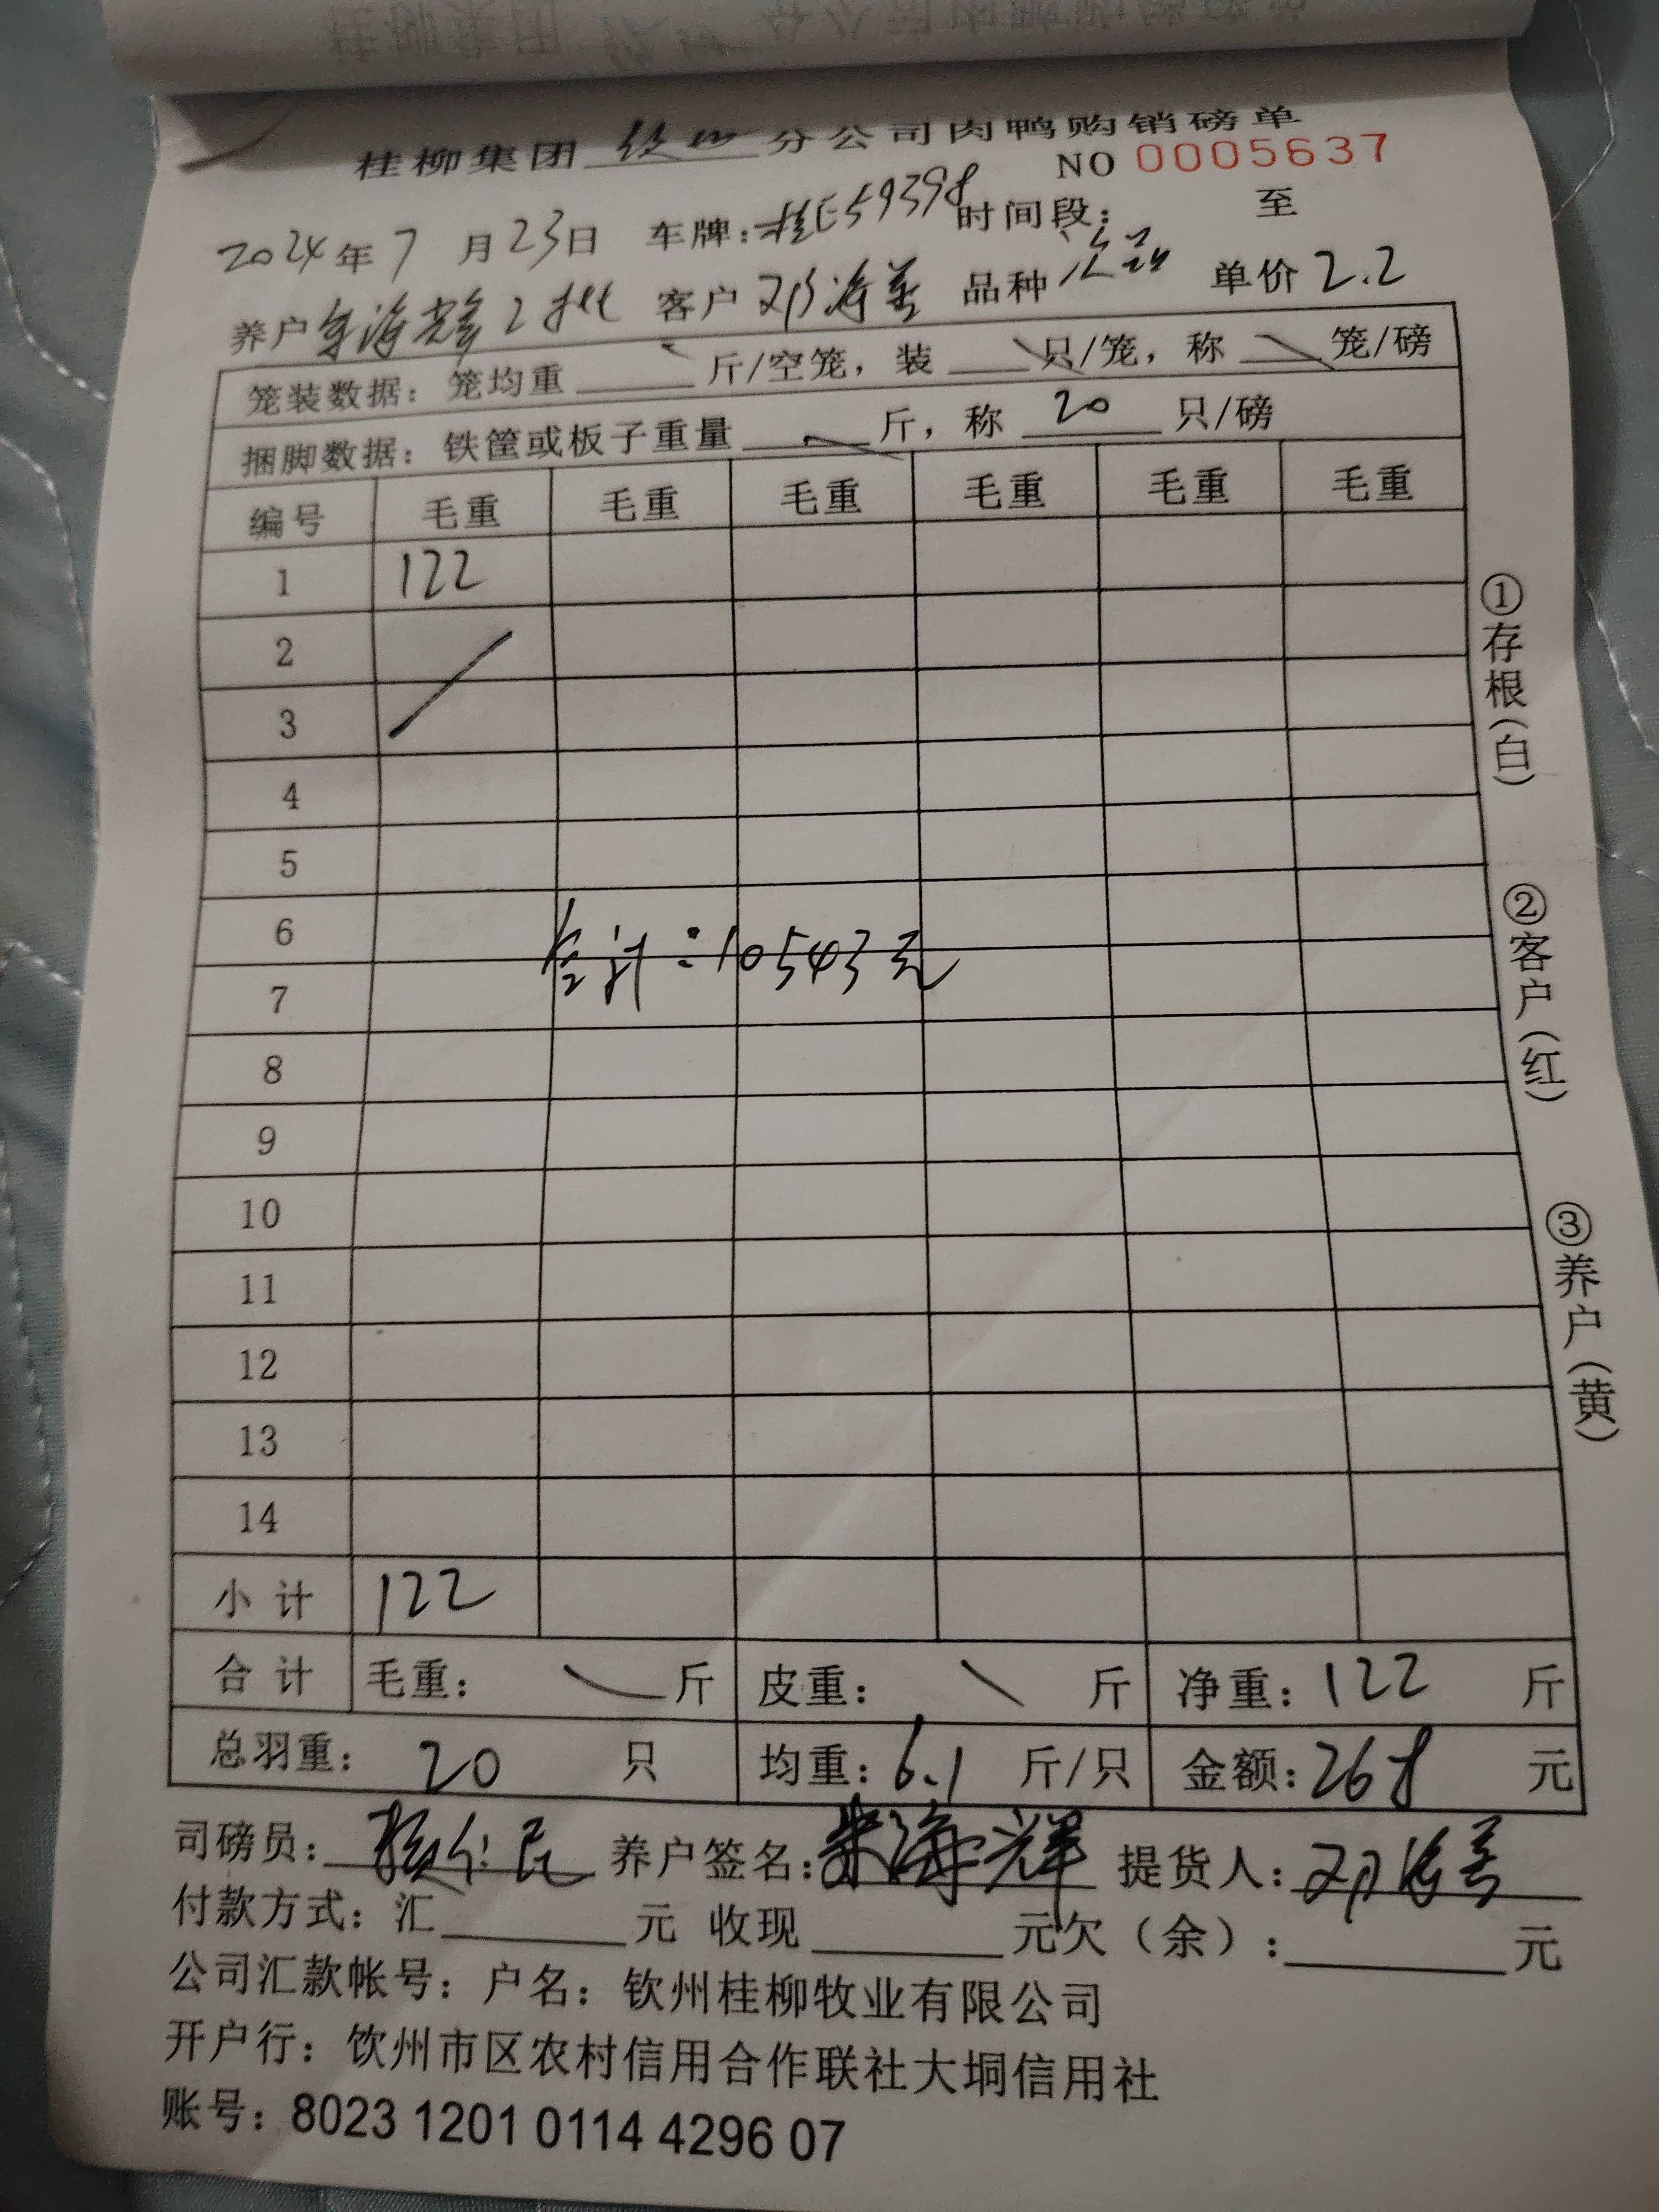 桂柳集团 钦州 分公司肉鸭购销磅单
NO 0005637
2024年7月23日 车牌:桂E59398 时间段: 至
养户 朱海辉2批 客户 邓海美 品种 次品 单价 2.2
笼装数据: 笼均重 斤/空笼, 装 只/笼, 称 笼/磅
捆脚数据: 铁筐或板子重量 斤, 称 20 只/磅
编号 毛重 毛重 毛重 毛重 毛重 毛重
1 122
2
3
4
5
6
合计:10543元
7
8
9
10
11
12
13
14
小计 122
合计 毛重: 斤 皮重: 斤 净重: 122 斤
总羽重: 20 只 均重: 6.1 斤/只 金额: 268 元
司磅员: 民 养户签名: 朱海辉 提货人: 邓海美
付款方式: 汇 元 收现 元欠(余): 元
公司汇款帐号: 户名: 钦州桂柳牧业有限公司
开户行: 钦州市区农村信用合作联社大垌信用社
账号: 8023 1201 0114 4296 07
①存根(白)
②客户(红)
③养户(黄)